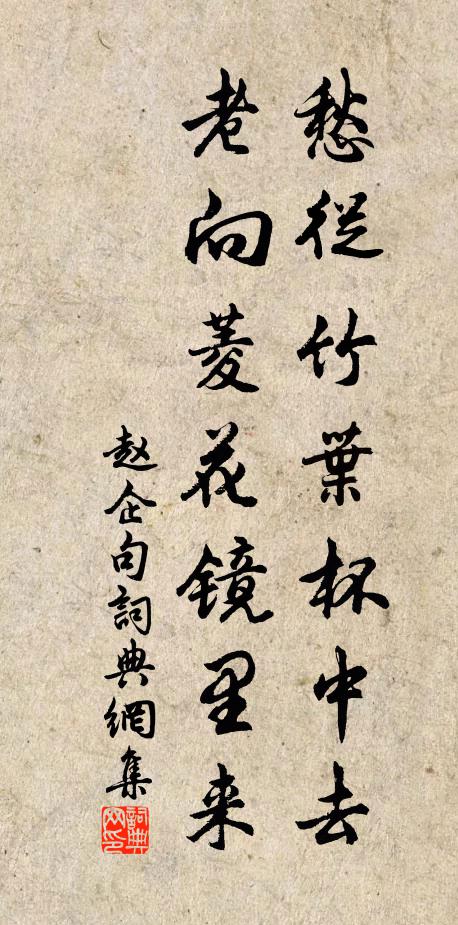 愁從竹葉杯中去
老向菱花镜里来
赵企句詞典網集
詞典
网印